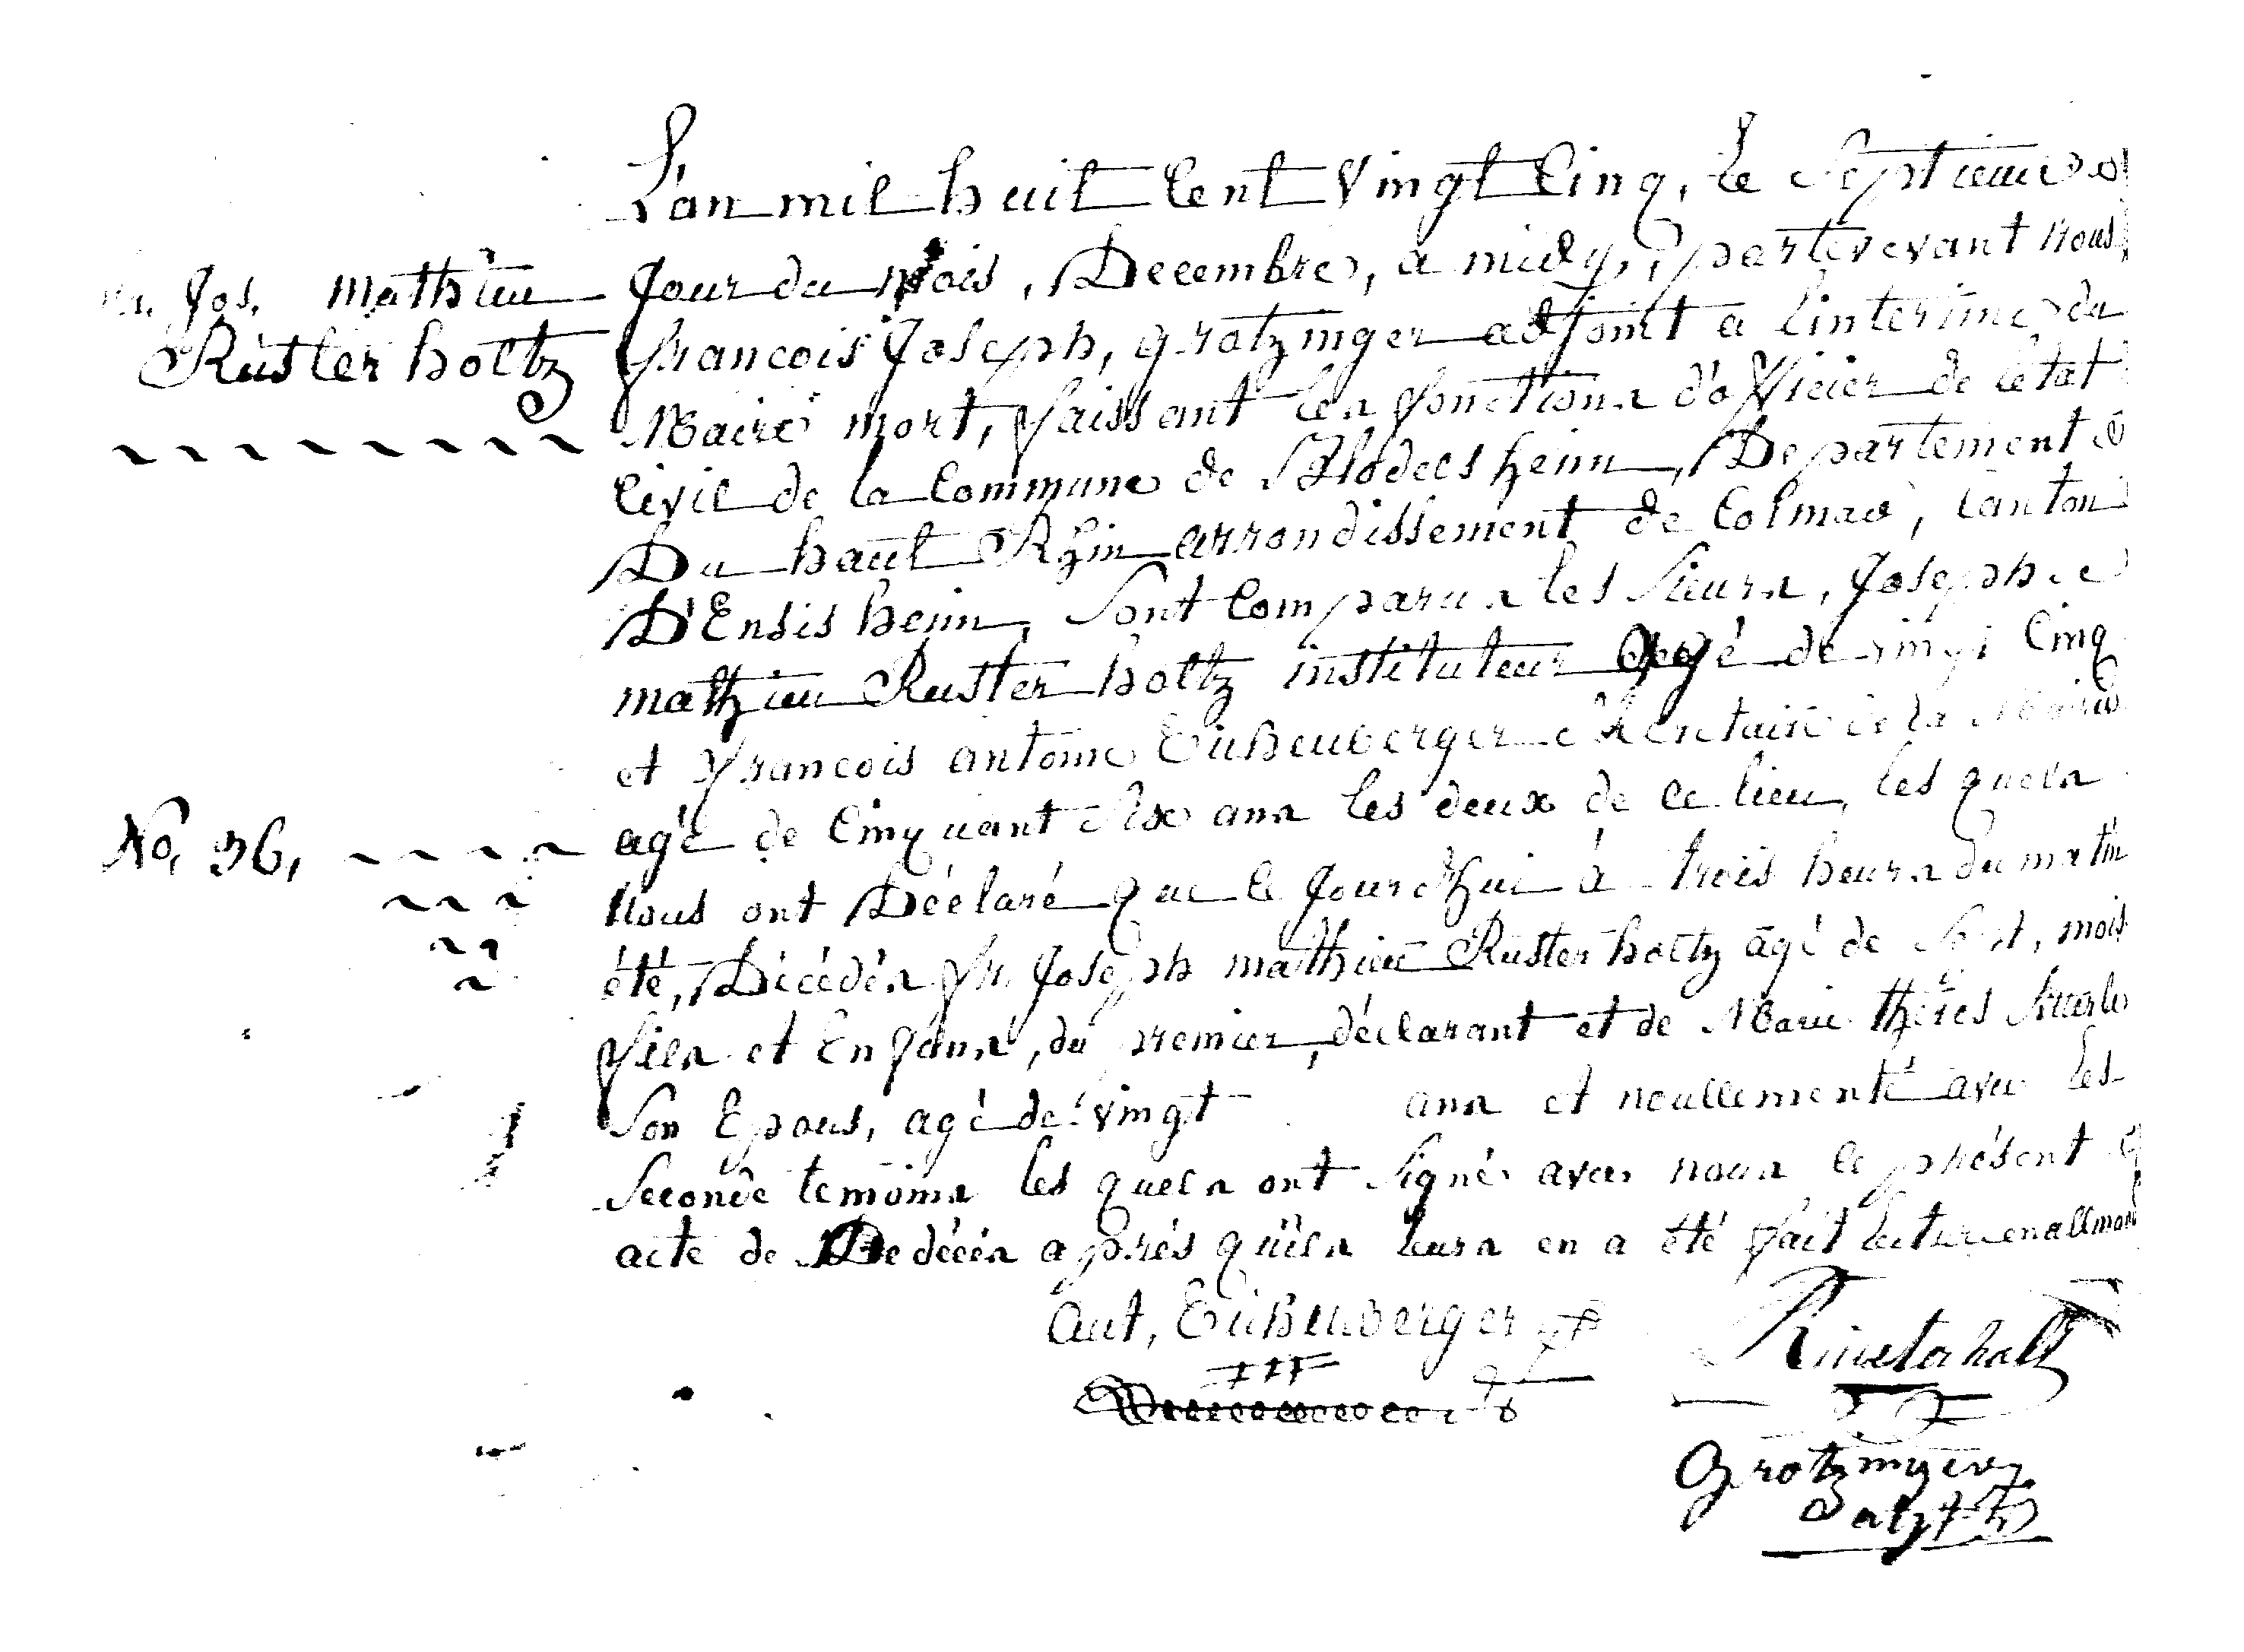 L'an mil huit Cent Vingt Cinq, le Septieme
Jour du Mois, Decembre, a midy, parteverant nous,
fr. Jos. Mathieu
Rusterholtz
francois Joseph, grotzinger adjoint a linterime du
Maire mort, faissant les fonctions d'officier de letat
Civil de la Commune de Blodelsheim, Departement
Du haut Rhin arrondissement de Colmar, Canton
D'Ensisheim, Sont Comparus les Sieurs, Joseph
mathieu Rusterholtz instituteur agé de vingt Cinq
et francois antoine Eichenberger Secretaire de la Mairie
No, 36,
agé de Cinquant Six ans les deux de ce lieu, les quels
Nous ont Déclaré que le Jourdhui à trois heurs du matin
été, Décédés fr. Joseph mathieu Rusterholtz âgé de Sept, mois
fils et Enfans, du premier, déclarant et de Marie Théres
Son Epous, agé de vingt ans et noullementé avec les
Seconde temoins les quels ont Signé avec nous le présent
acte de De décés aprés qu'ils leurs en a été fait lecture en allmand
Ant, Eichenberger
Rusterholtz
Grotzinger
adjt